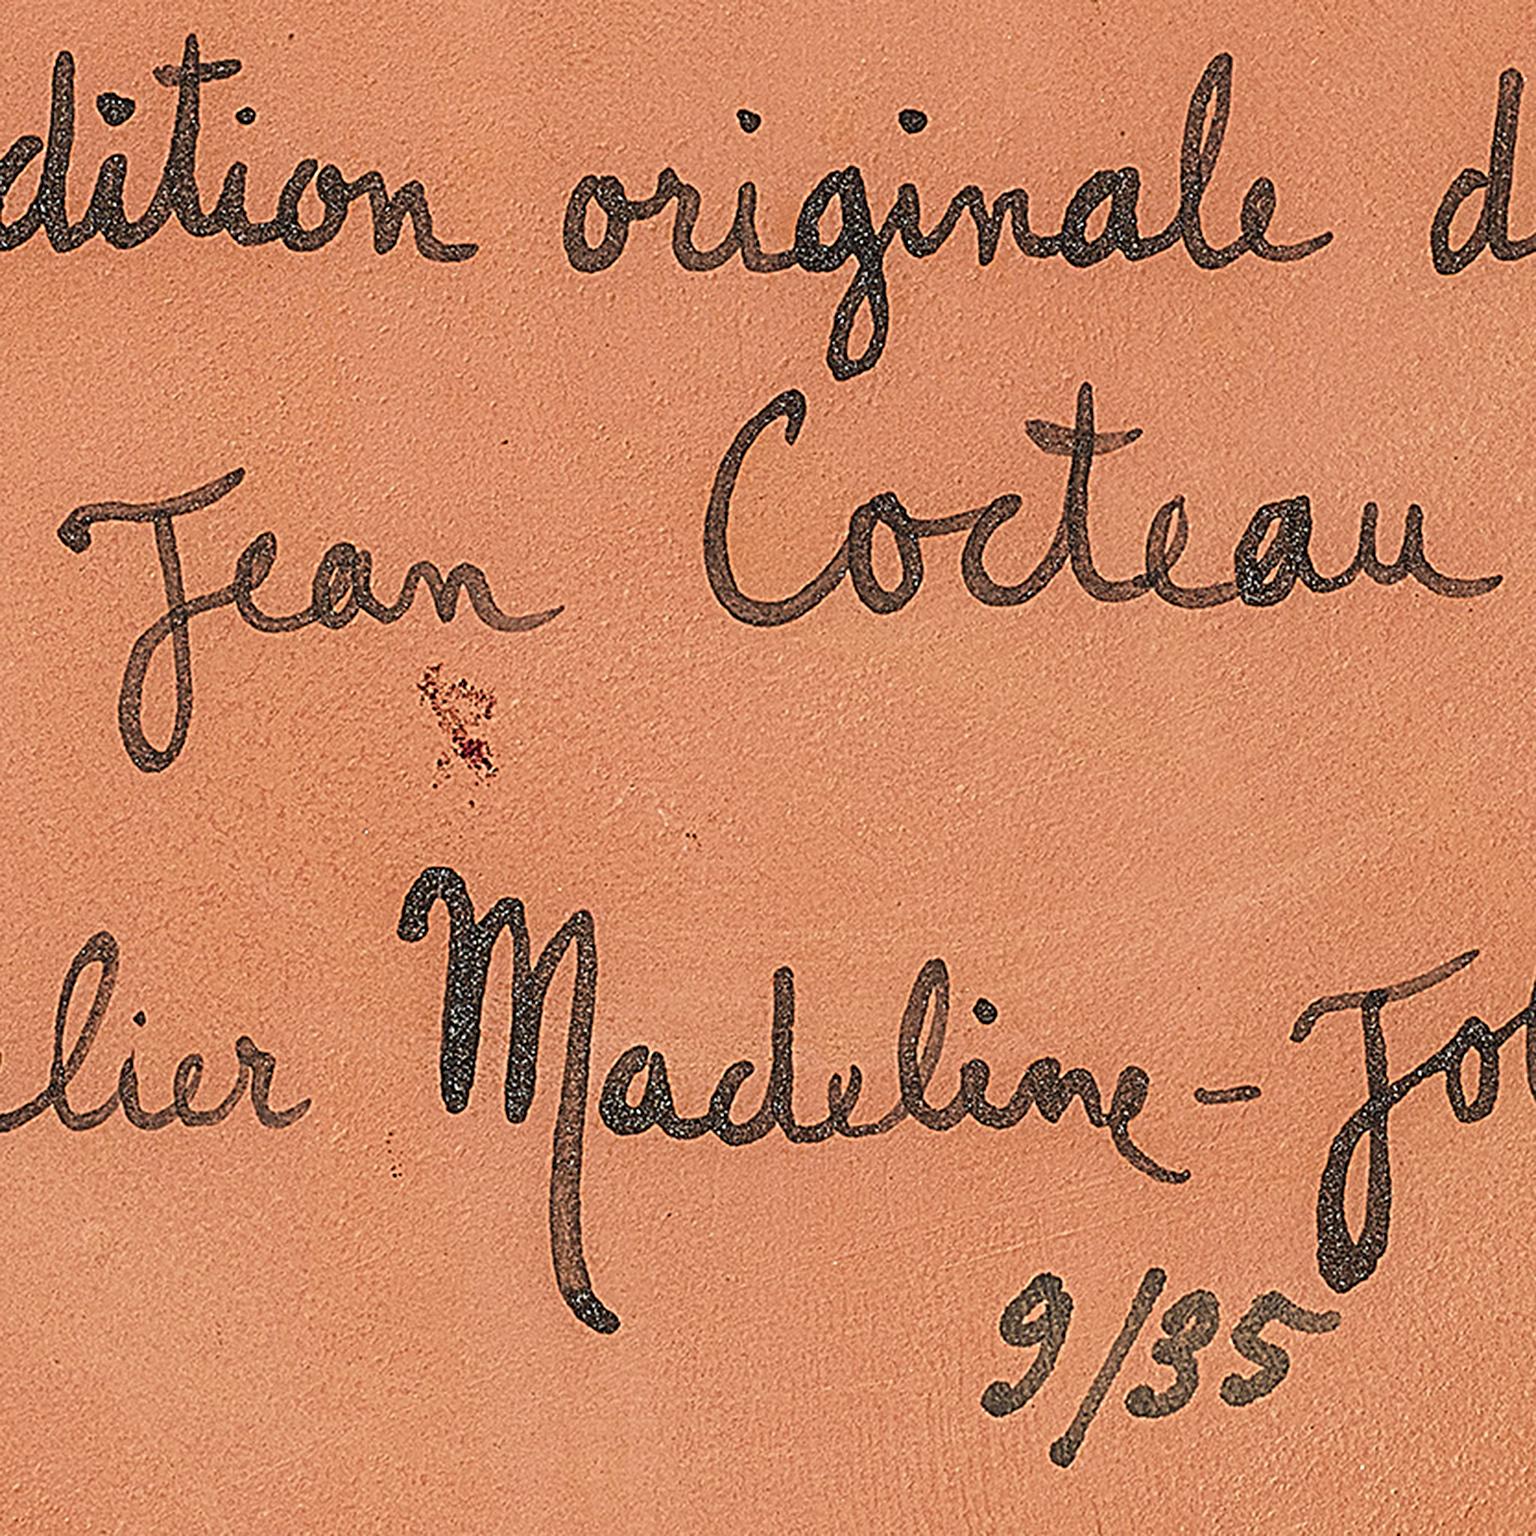 dition originale d
Jean Cocteau
lier Madeline-Jol
9/35